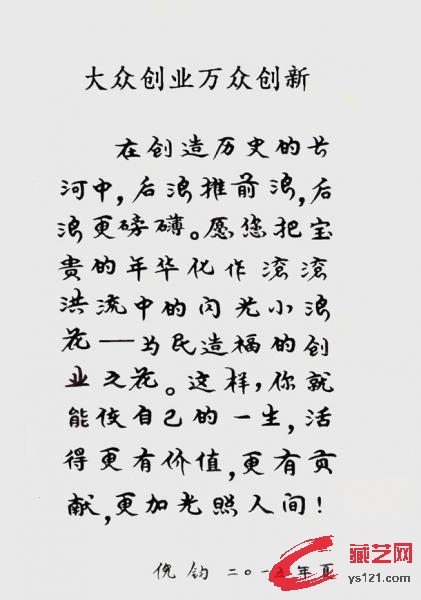 大众创业万众创新
在创造历史的长
河中，后浪推前浪，后
浪更磅礴。愿您把宝
贵的年华化作滚滚
洪流中的闪光小浪
花——为民造福的创
业之花。这样，你就
能使自己的一生，活
得更有价值，更有贡
献，更加光照人间！
倪钧 二〇一五年夏
藏艺网
ys121.com